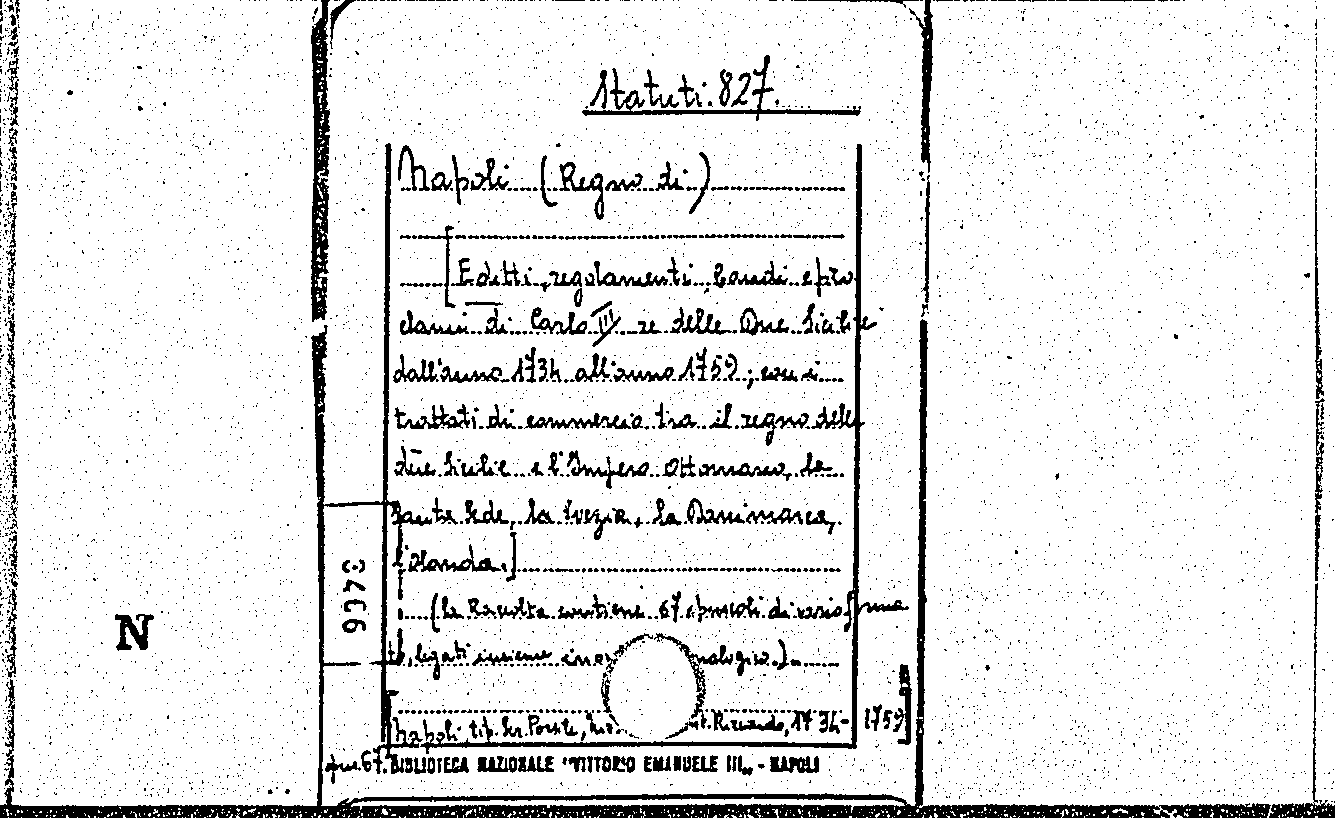 Statuti. 827.
Napoli (Regno di)
[Editti, regolamenti, bandi e pro
clami di Carlo III re delle Due Sicilie
dall'anno 1734 all'anno 1759; con i
trattati di commercio tra il regno delle
due Sicilie e l'Impero Ottomano, la
Santa Sede, la Svezia, la Danimarca,
l'Olanda.]
(la Raccolta contiene 67 opuscoli di vario forma
to, legati insieme in nologico.)
Napoli, tip. Ser. Porsile, Ricciardo, 1734-1759]
opu. 67. BIBLIOTECA NAZIONALE "VITTORIO EMANUELE III„ - NAPOLI
9346
N